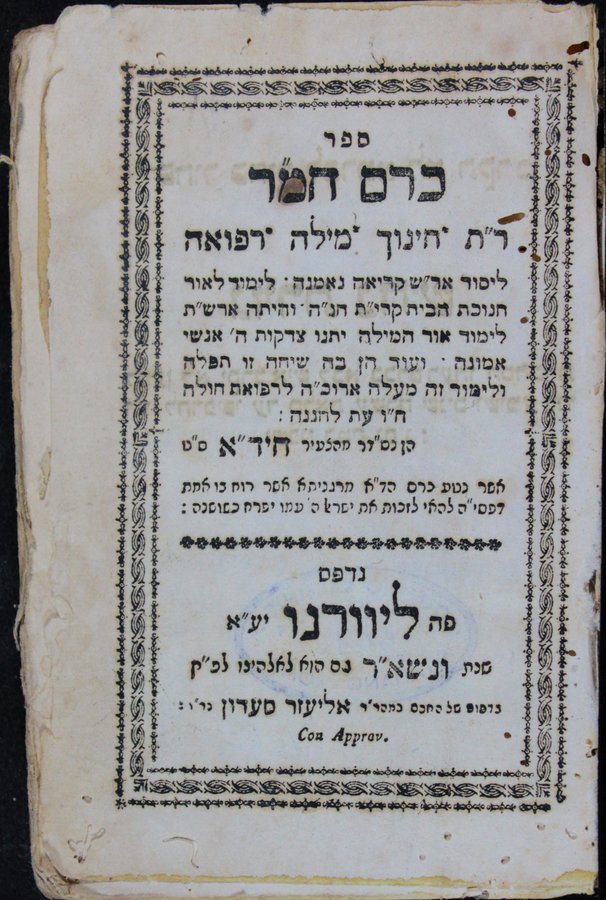 ספר
כרם חמ"ר
ר"ת חינוך מילה רפואה
ליסוד אר"ש קריאה נאמנה · לימוד לאור
חנוכת הבית קרי"ת חנ"ה · והיתה ארש"ת
לימוד אור המילה יתנו צדקות ה' אנשי
אמונה · ועוד הן בה שיחה זו תפלה
ולימוד זה מעלה ארוכ"ה לרפואת חולה
ח"ו עת לחננה :
הן גס"דר מהצעיר חיד"א ס"ט
אשר נטע כרם הד"א מרגניתא אשר רוח בו אחת
דפסי"ה להאי לזכות את ישראל ה' עמו יפרח כשושנה :
נדפס
פה ליוורנו יע"א
שנת ונשא"ר גם הוא לאלהינו לפ"ק
בדפוס של החכם כמהר"ר אליעזר סעדון
Con Approv.